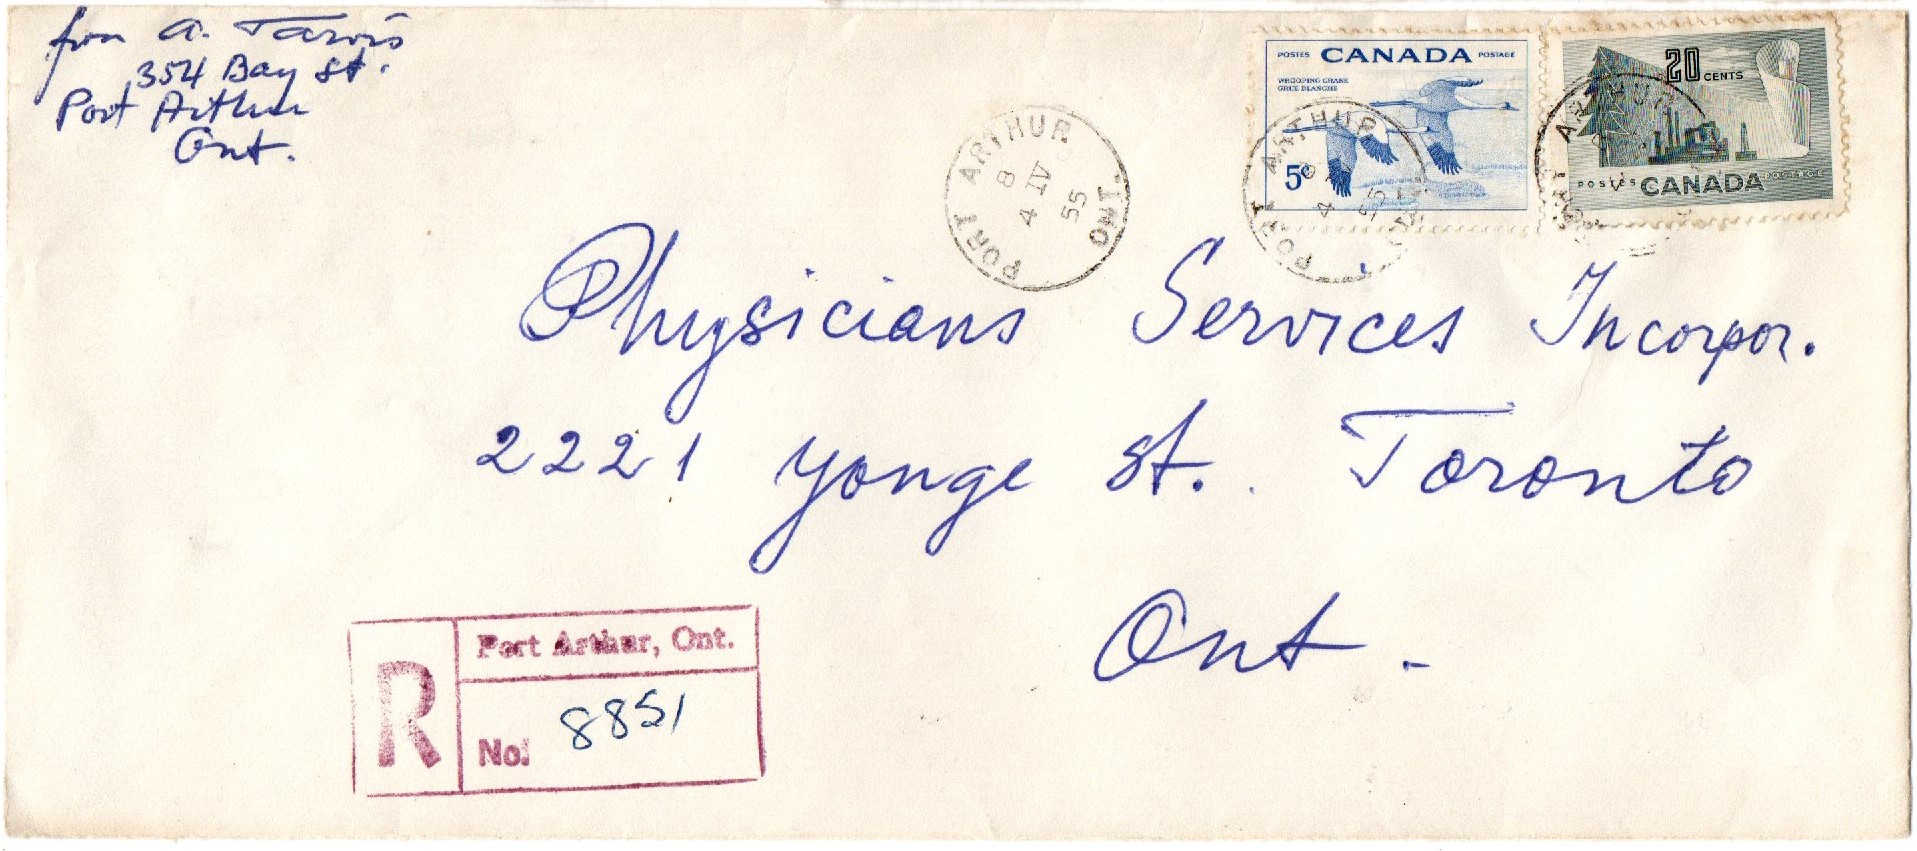 from A. Tarvis
354 Bay St.
Port Arthur
Ont.
POSTES CANADA POSTAGE
WHOOPING CRANE
GRUE BLANCHE
5¢
20 CENTS
POSTES CANADA POSTAGE
PORT ARTHUR
8
4 IV 55
ONT.
PORT ARTHUR
4
55
ARTHUR
Physicians Services Incorpor.
2221 Yonge St. Toronto
Ont.
R
Port Arthur, Ont.
No. 8851